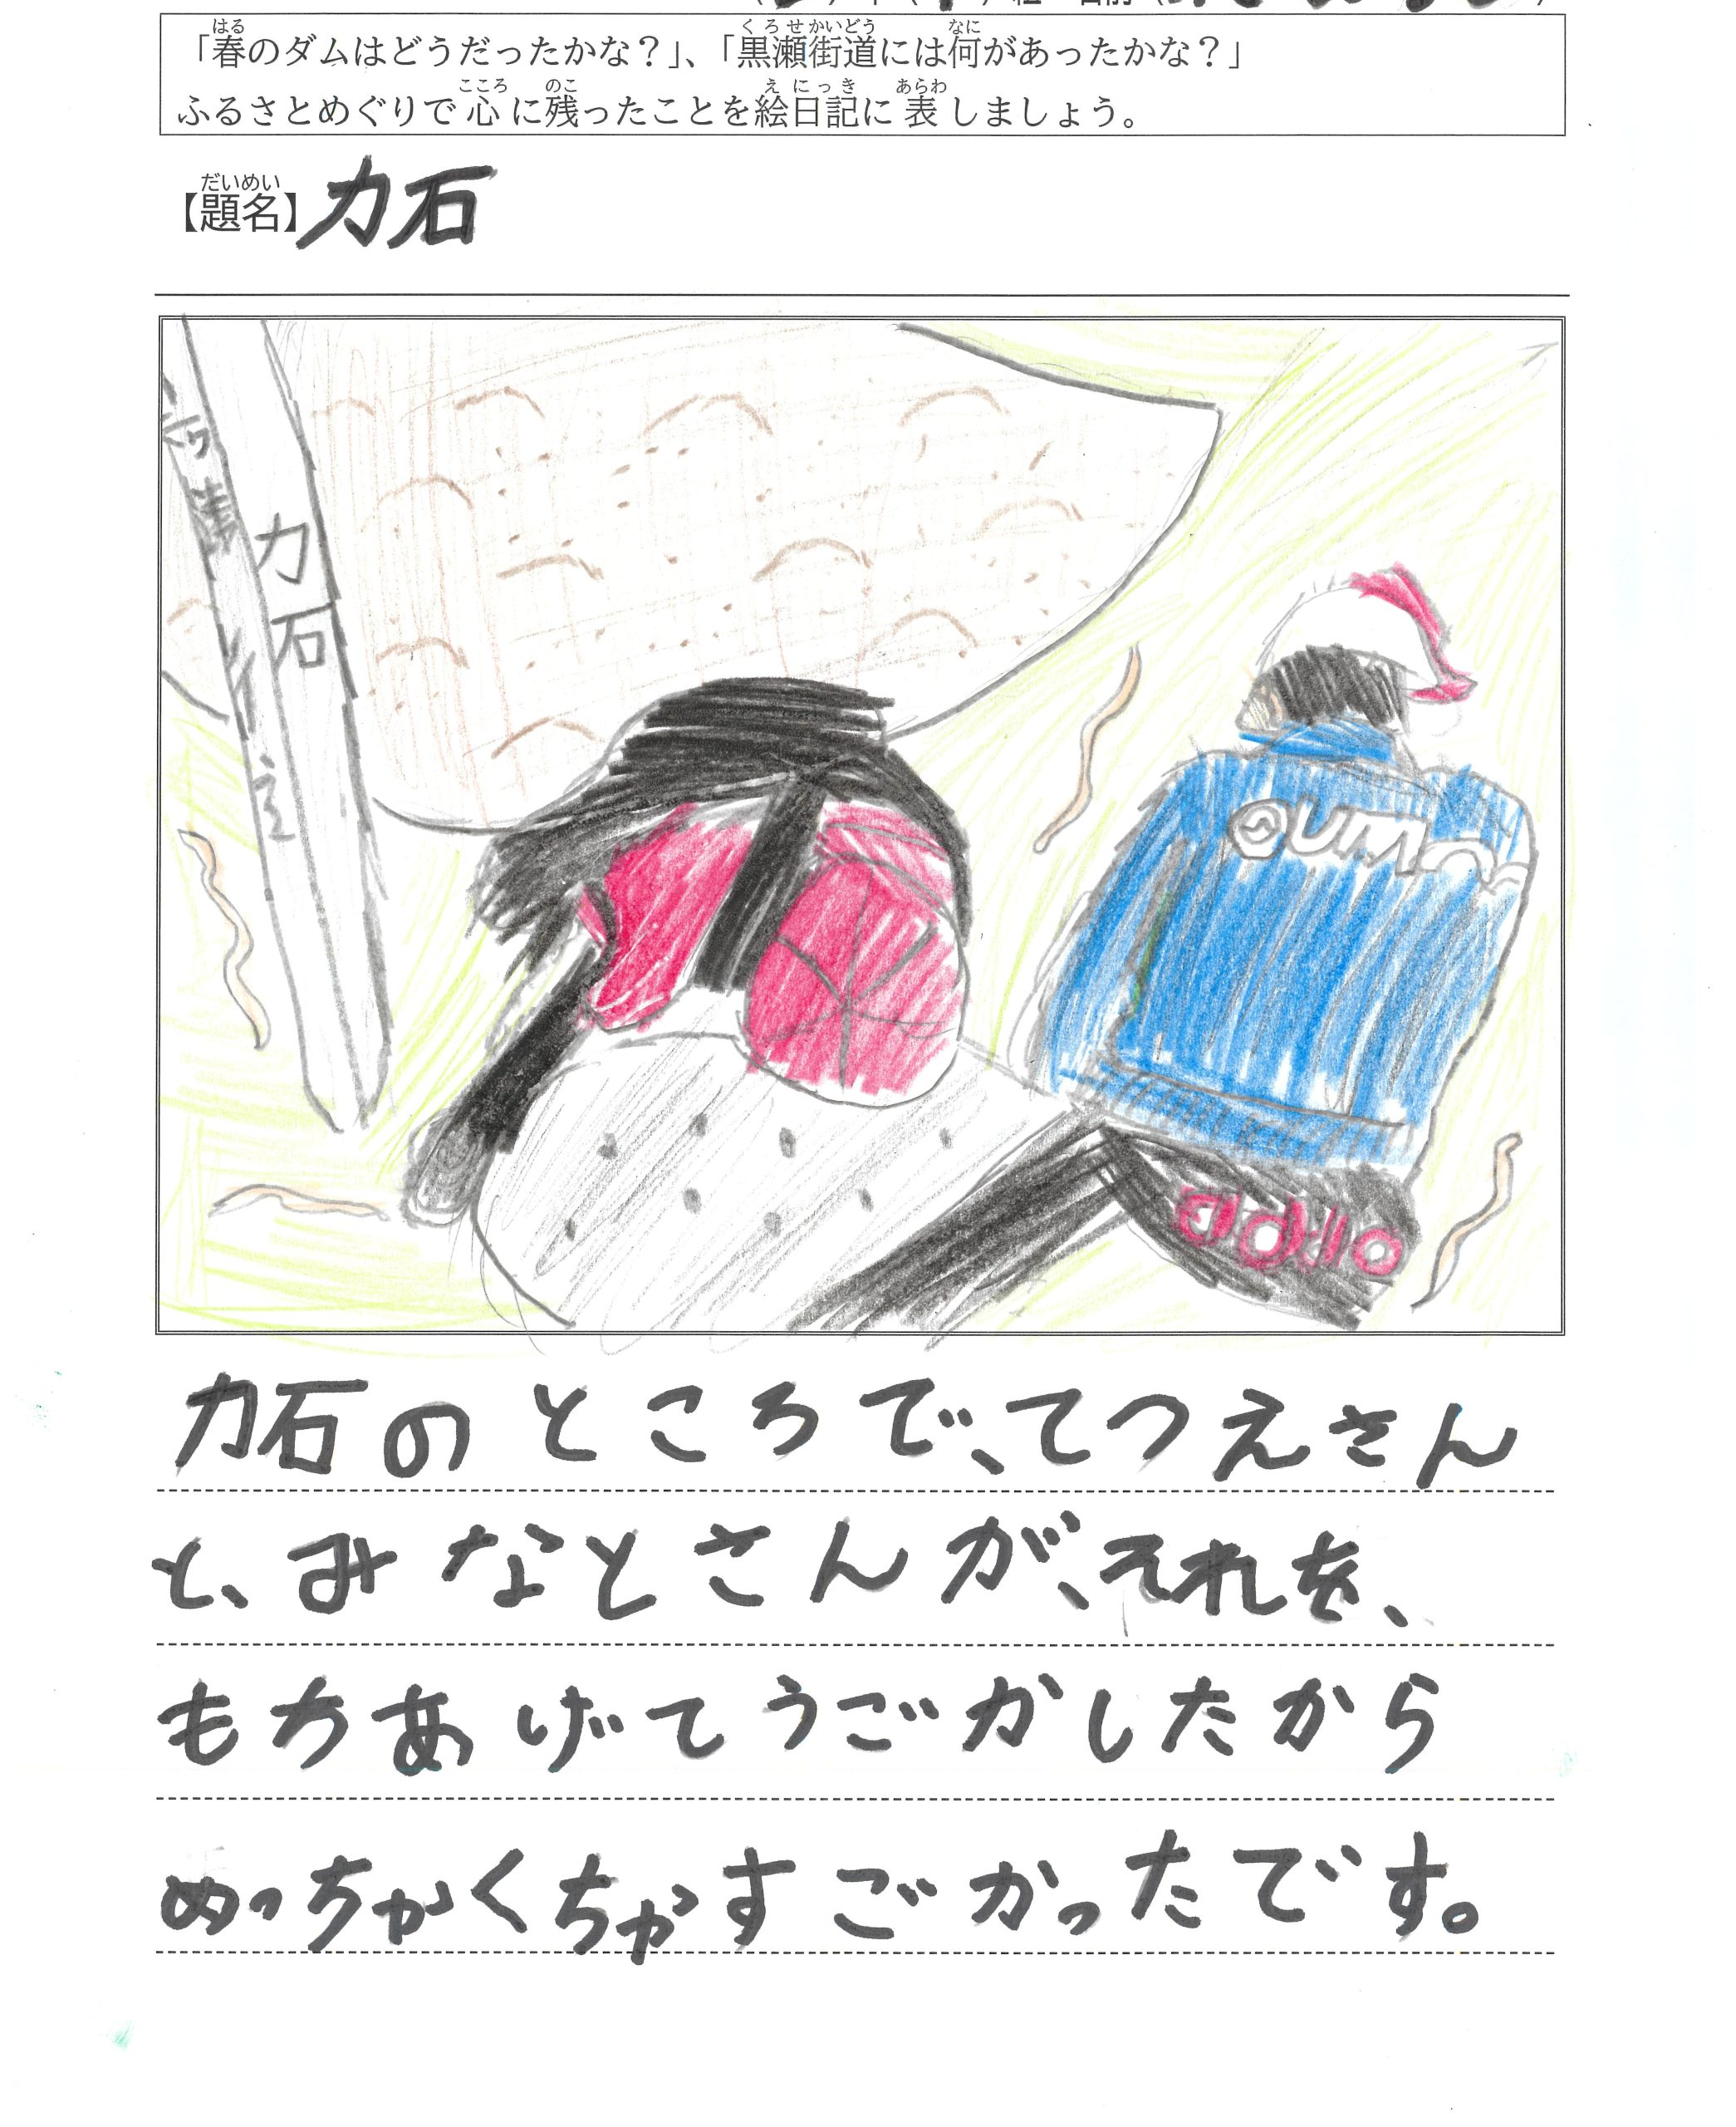 「春のダムはどうだったかな？」、「黒瀬街道には何があったかな？」
ふるさとめぐりで心に残ったことを絵日記に表しましょう。
【題名】力石
力石
力石のところで、てつえさん
と、みなとさんが、それを、
もちあげてうごかしたから
めっちゃくちゃすごかったです。